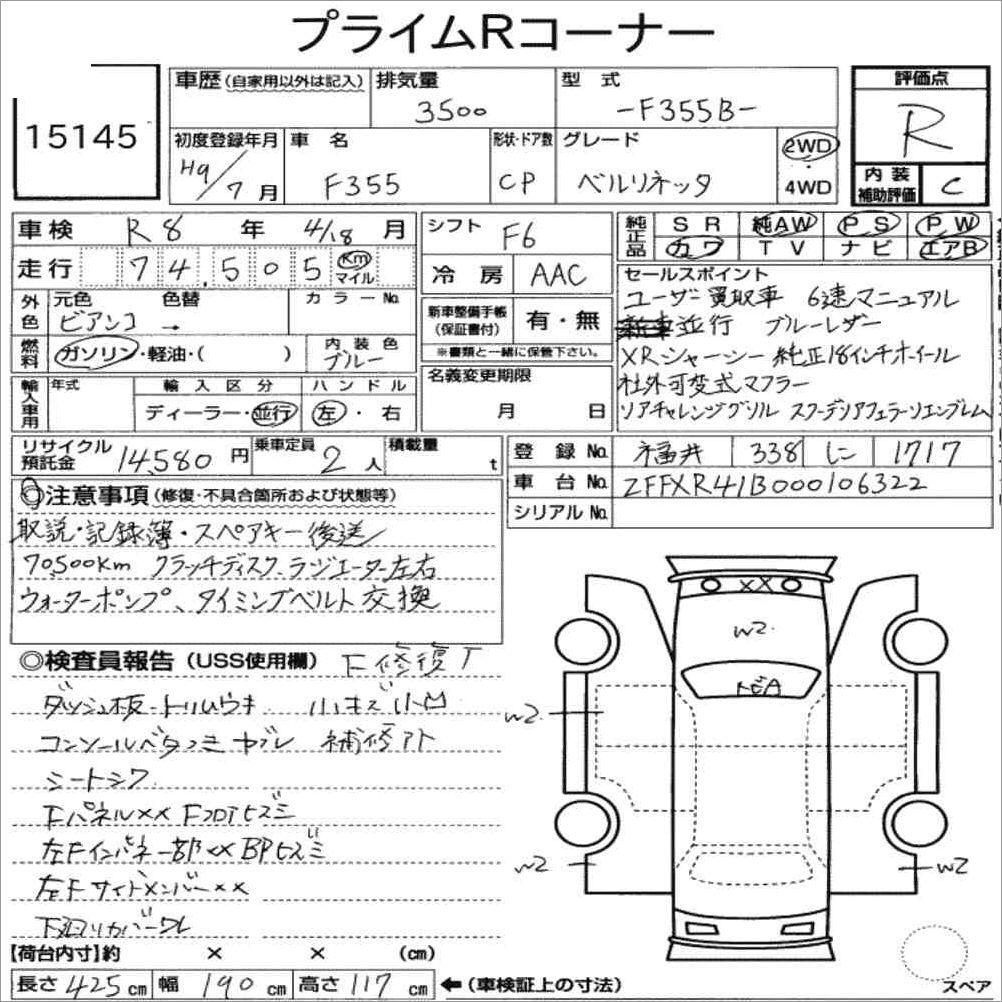 プライムRコーナー
15145
車歴 (自家用以外は記入)
排気量
3500
型式
-F355B-
評価点
R
初度登録年月
H9/7月
車名
F355
形状・ドア数
CP
グレード
ベルリネッタ
2WD
・
4WD
内装
補助評価
C
車検 R8年 4/18月
走行 74,505 Km
マイル
外色
元色
ビアンコ →
色替
カラーNo.
燃料
ガソリン・軽油・( )
内装色
ブルー
輸入車用
年式
輸入区分
ディーラー・並行
ハンドル
左・右
シフト F6
冷房 AAC
新車整備手帳
(保証書付)
有・無
※書類と一緒に保管下さい。
名義変更期限
月 日
純正品
SR 純AW PS PW
カワ TV ナビ エアB
セールスポイント
ユーザー買取車 6速マニュアル
並行 ブルーレザー
XRシャーシー 純正18インチホイール
社外可変式マフラー
リアチャレンジグリル スクーデリアフェラーリエンブレム
リサイクル
預託金
14,580円
乗車定員
2人
積載量
t
登録No. 福井 338 に 1717
車台No. ZFFXR41B000106322
シリアルNo.
◎注意事項 (修復・不具合箇所および状態等)
取説・記録簿・スペアキー後送
70,500Km クラッチディスク、ラジエーター左右
ウォーターポンプ、タイミングベルト交換
◎検査員報告 (USS使用欄) F修復了
ダッシュ板・トリムウキ 小キズ小凹
コンソールベタつきヤブレ 補修アト
シートシワ
FパネルXX Fフロアヒズミ
左Fインパネ一部XX BPヒズミ
左FサイドメンバーXX
下廻りカバーワレ
XX
W2
トビA
W2
W2
W2
【荷台内寸】約 × × (cm)
長さ 425cm 幅 190cm 高さ 117cm ←(車検証上の寸法)
スペア